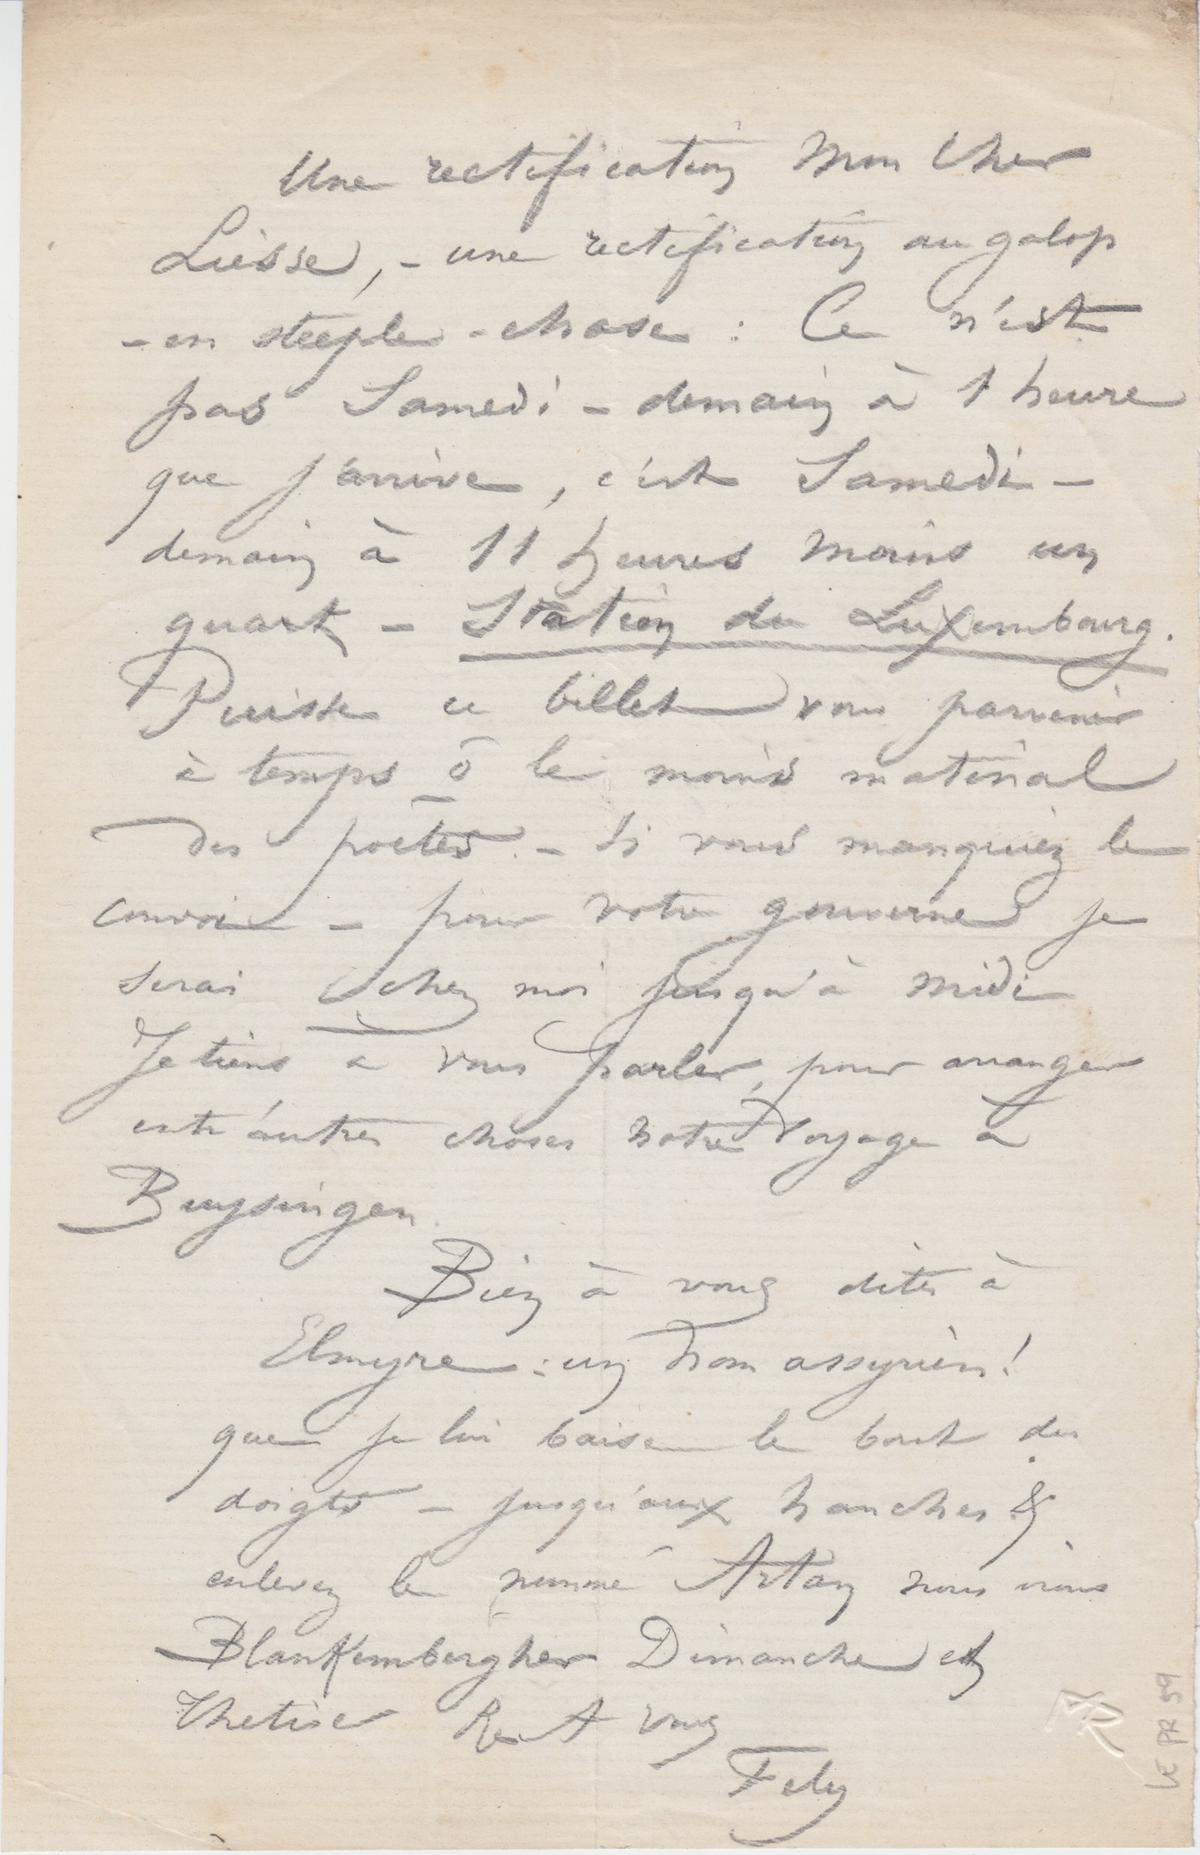 Une rectification Mon Cher
Liesse, - une rectification au galop
- en steeple - chase : Ce n'est
pas Samedi - demain à 1 heure
que j'arrive, c'est Samedi -
demain à 11 heures moins un
quart - Station du Luxembourg.
Puisse ce billet vous parvenir
à temps ô le moins matinal
des poëtes. - Si vous manquiez le
convoi - pour votre gouverne je
serai chez moi jusqu'à midi
Je tiens à vous parler, pour arranger
entr'autres choses notre voyage à
Buysingen.
Bien à vous dites à
Elmyre : un nom assyrien!
que je lui baise le bout des
doigts - jusqu'aux hanches &
enlevez le nommé Artan nous irions
Blankembergher Dimanche et
Thetiser
vous
Fely
LE PR 59